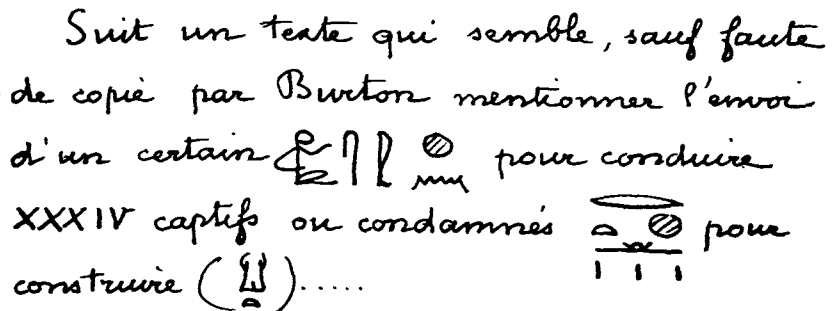 Suit un texte qui semble, sauf faute
de copie par Burton mentionner l'envoi
d'un certain pour conduire
XXXIV captifs ou condamnés pour
construire ( ).....